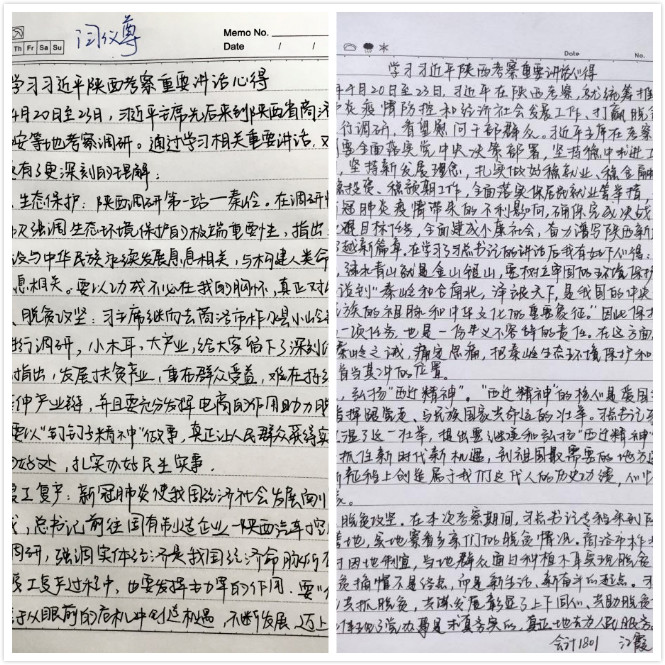 Memo No.
Th Fr Sa Su
Date / /
学习习近平陕西考察重要讲话心得
4月20日至23日，习近平主席先后来到陕西省商洛
安等地考察调研。通过学习相关重要讲话，对
有了更深刻的理解：
生态保护：陕西调研第一站—秦岭。在调研
次强调生态环境保护的极端重要性，指出
设与中华民族永续发展息息相关，与构建人类命
息相关。要以功成不必在我的胸怀，真正对
脱贫攻坚：习主席继而去商洛市柞水县小岭
进行调研，小木耳、大产业，给大家留下了深刻
指出，发展扶贫产业，重在群众受益，难在持续
延伸产业链，并且要充分发挥电商的作用助力脱
要以"钉钉子精神"做事，真正让人民群众获得实
的好处，扎实办好民生实事．
复工复产：新冠肺炎使我国经济社会发展面临
，总书记前往国有制造企业—陕西汽车控
调研，强调实体经济是我国经济命脉所在
复工复产过程中，也要发挥出力军的作用．要"
于从眼前的危机中创造机遇，不断发展，迈上
Date No.
学习习近平陕西考察重要讲话心得
年4月20日至23日，习近平在陕西考察，就统筹推
炎疫情防控和经济社会发展工作、打赢脱贫
行调研，看望慰问干部群众。习近平主席在考察
要全面落实党中央决策部署，坚持稳中求进工
，坚持新发展理念，扎实做好稳就业、稳金融
稳投资、稳预期工作，全面落实保居民就业等举措
冠肺炎疫情带来的不利影响，确保完成决战
坚目标任务，全面建成小康社会，奋力谱写陕西新
越新篇章。在学习了习总书记的讲话后我有如下心得：
绿水青山就是金山银山，要树立牢固的环境保护
谈到"秦岭和合南北，泽被天下，是我国的中央
民族的祖脉和中华文化的重要象征。"因此保
一项任务，也是一份义不容辞的责任。在这方面
秦岭之诫，痛定思痛，把秦岭生态环境保护和
首当其冲的位置。
弘扬"西迁精神"。"西迁精神"的核心是爱国
指挥跟党走、与民族国家共命运的壮举。习总书记
了这一壮举，提出要继续和弘扬"西迁精神"
抓住新时代新机遇，到祖国最需要的地方
新征程上创造属于我们这代人的历史功绩，人
脱贫攻坚。在本次考察期间，习总书记走访来到
基地，实地察看乡亲们的脱贫情况。商洛市柞水
因地制宜，当地群众通过种植木耳实现脱贫
脱贫摘帽不是终点，而是新生活、新奋斗的起点。
去抓脱贫，去谋发展彰显了上下同心，共助脱贫
会计1801 江霞